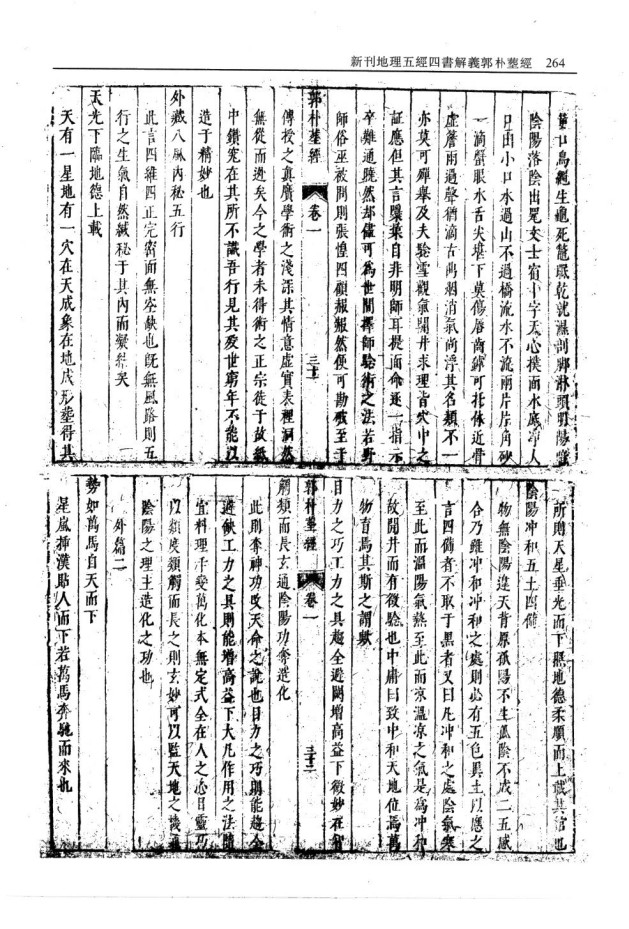 新刊地理五經四書解義郭朴墓經 264
陰陽落陰出
口田小口水過山不過橋流水不流兩片片角砂
一滴蟹眼水舌尖堪下莫傷唇齒鏬可托休近骨
虛簷雨過聲猶滴古鼎烟消氣尚浮其名類不一
亦莫可殫舉及夫驗雪觀氣開井求理皆穴中之
証應但其言檃菓自非明師耳提面命逐一指示
卒難通曉然却儘可為世間擇師驗術之法若野
師俗巫被問則張惶四顧赧赧然便可勘破至于
郭朴墓經 卷一 三十二
傳授之真廣學術之淺深其情意虛實表裡洞然
無從而遁矣今之學者未得術之正宗徒于故紙
中鑽究在其所不識吾行見其歿世窮年不能以
造于精妙也
外藏八風內秘五行
此言四維四正完密而無空缺也既無風路則五
行之生氣自然緘秘于其內而凝結矣
天光下臨地德上載
天有一星地有一穴在天成象在地成形葬得其
所則天星垂光而下照地德柔順而上載其棺也
陰陽冲和五土四備
物無陰陽違天背原孤陽不生孤陰不成二五感
合乃能冲和冲和之處則必有五色異土以應之
言四備者不取于黑者又曰凡冲和之處陰氣寒
至此而溫陽氣熱至此而凉溫凉之氣是為冲和
故開井而有徵驗也中庸曰致中和天地位焉萬
物育焉其斯之謂歟
目力之巧工力之具趨全避闕增高益下微妙在智
郭朴墓經 卷一 三十三
觸類而長玄通陰陽功奪造化
此則奪神功改天命之說也目力之巧則能趨全
避缺工力之具則能增高益下大凡作用之法隨
宜料理千變萬化本無定式全在人之心目靈巧
以類度類觸而長之則玄妙可以監天地之機
陰陽之理主造化之功也
外篇二
勢如萬馬自天而下
星嵐揷漢貼人而下若萬馬奔馳而來也